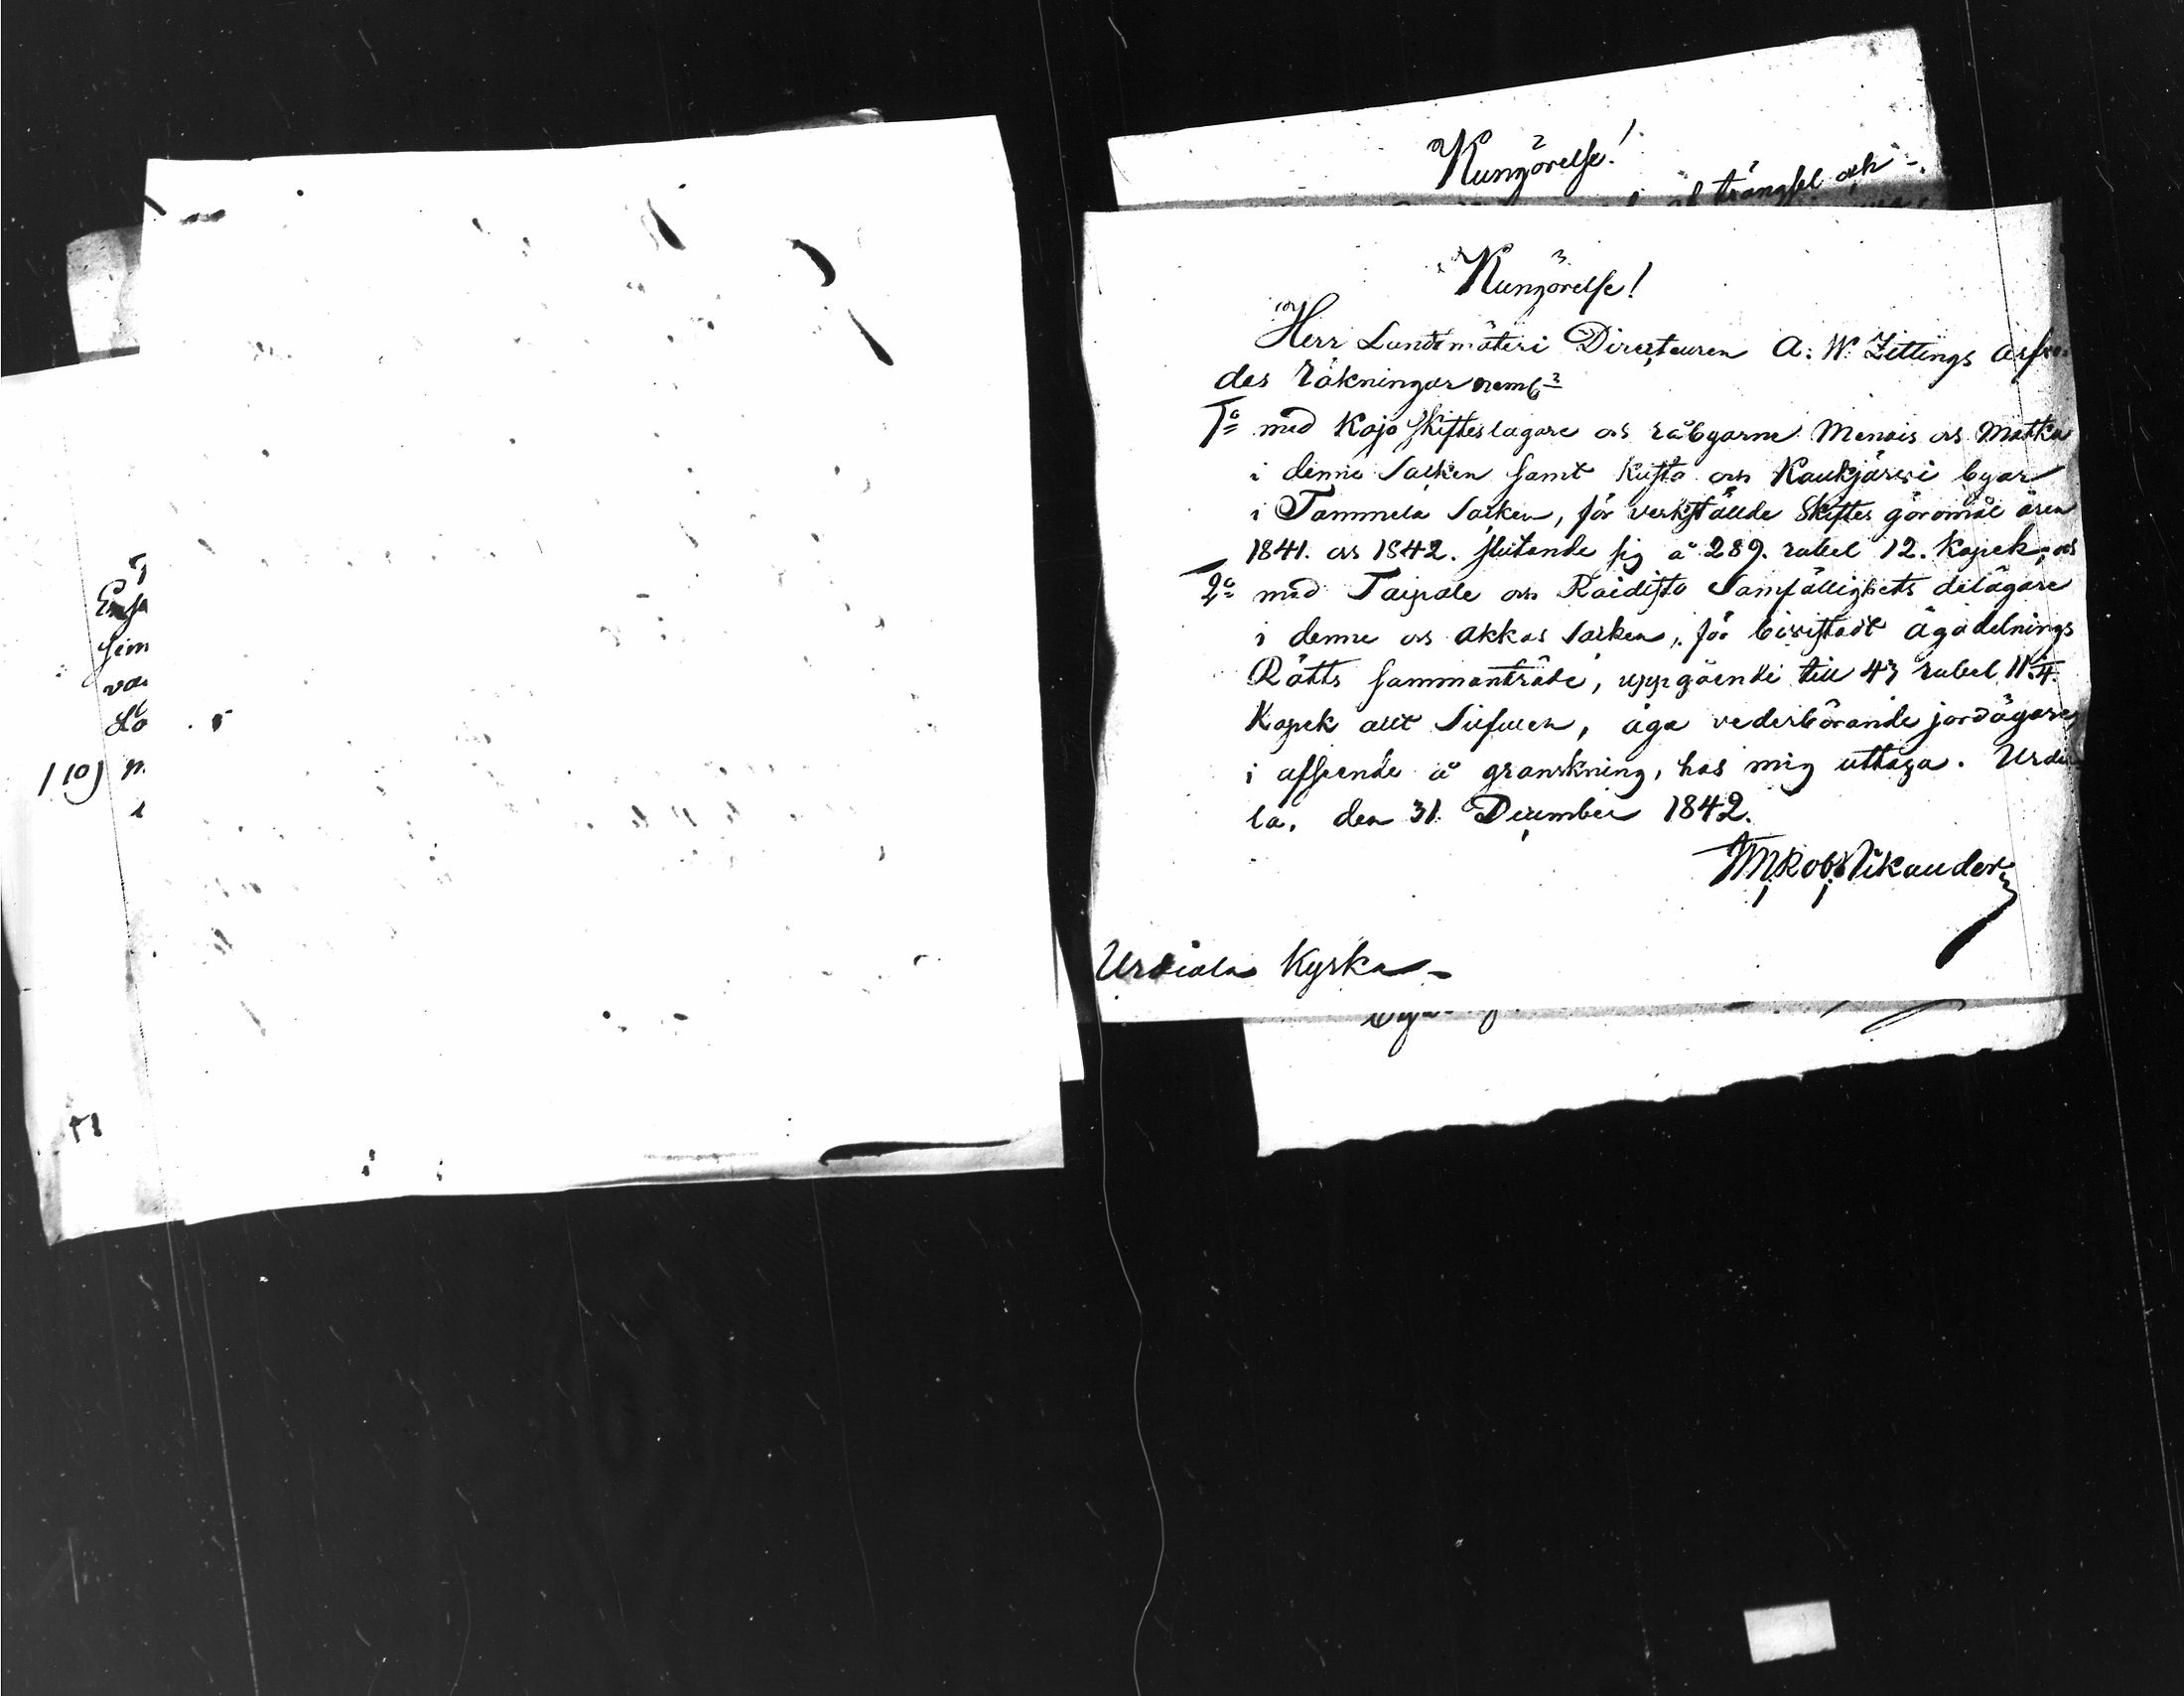 Kungörelse!
trängsel och
Kungörelse!
Herr Landtmäteri Directeuren A. W. Zittings arfvo-
des räkningar neml:
1o med Kojo Skifteslagare och råbyarne Menois och Matku
i denne Socken samt Susta och Kaukjärwi byar
i Tammela Socken, för verkstälde Skiftes göromål åren
1841. och 1842. slutande sig å 289. rubel 12. Kopek; och
2o med Taipale och Raidisto Samfällighets delägare
i denne och Akkas Socken, för bevistadt ägodelnings
Rätts sammanträde, uppgående till 43 rubel 11 3/4.
Kopek allt Silfver, äga vederbörande jordägare
i afseende å granskning, hos mig uttaga. Urdia-
la, den 31 December 1842.
Rob: Nikander
Urdiala Kyrka
sim
110)